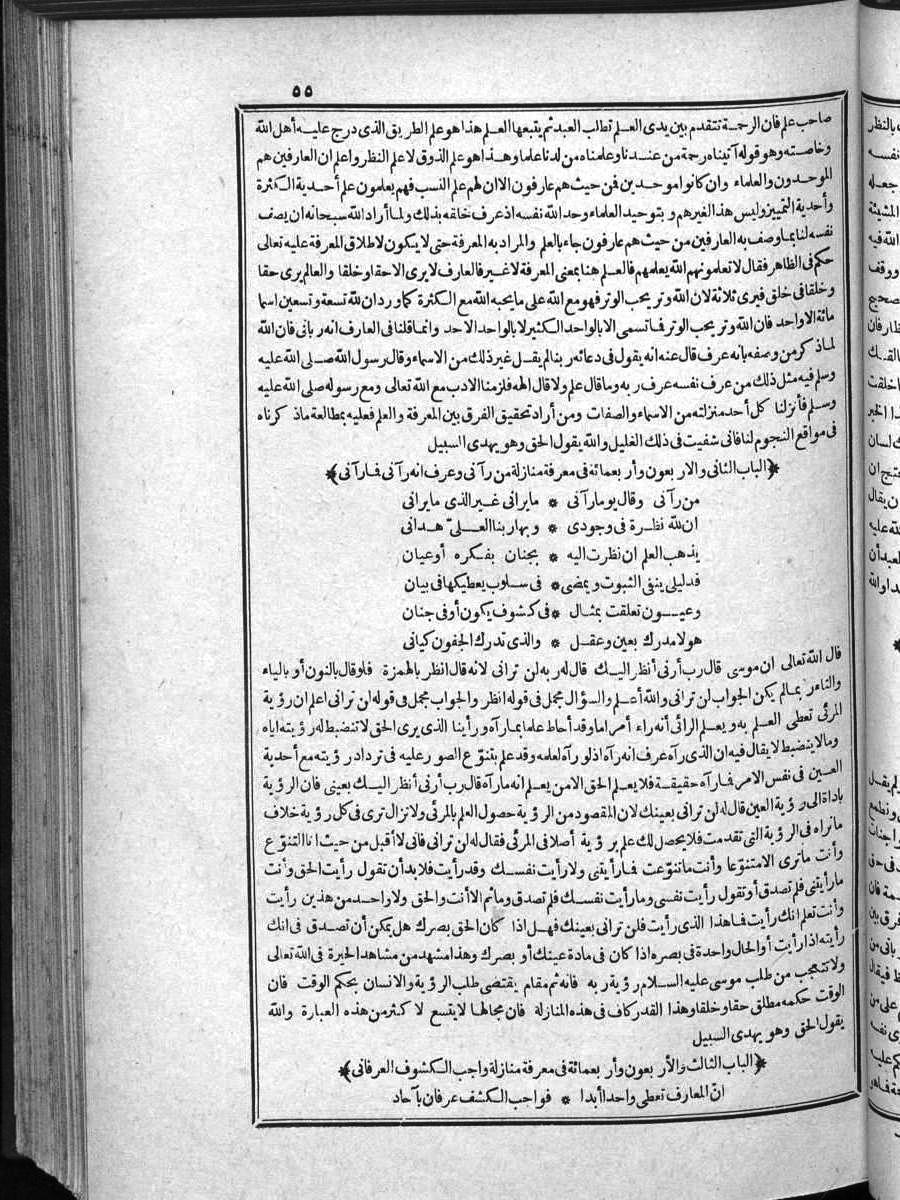 ٥٥
صاحب علم فان الرحمة تتقدم بين يدى العلم تطلب العبد ثم يتبعها العلم هذا هو علم الطريق الذى درج عليه أهل الله
وخاصته وهو قوله آتيناه رحمة من عندنا وعلمناه من لدنا علما وهذا هو علم الذوق لا علم النظر واعلم ان العارفين هم
الموحدون والعلماء وان كانوا موحدين فمن حيث هم عارفون الا ان لهم علم النسب فهم يعلمون علم أحدية الكثرة
وأحدية التمييز وليس هذا لغيرهم وبتوحيد العلماء وحد الله نفسه اذ عرف خلقه بذلك ولما أراد الله سبحانه ان يصف
نفسه لنا بما وصف به العارفين من حيث هم عارفون جاء بالعلم والمراد به المعرفة حتى لا يكون لاطلاق المعرفة عليه تعالى
حكم فى الظاهر فقال لا تعلمونهم الله يعلمهم فالعلم هنا بمعنى المعرفة لا غير فالعارف لا يرى الا حقا وخلقا والعالم يرى حقا
وخلقا فى خلق فيرى ثلاثة لان الله وتر يحب الوتر فهو مع الله على ما يحبه الله مع الكثرة كما ورد ان لله تسعة وتسعين اسما
مائة الا واحد فان الله وتر يحب الوتر فما تسمى الا بالواحد الكثير لا بالواحد الاحد وانما قلنا فى العارف انه ربانى فان الله
لما ذكر من وصفه بانه عرف قال عنه انه يقول فى دعائه ربنا لم يقل غير ذلك من الاسماء وقال رسول الله صلى الله عليه
وسلم فيه مثل ذلك من عرف نفسه عرف ربه وما قال علم ولا قال الهه فلزمنا الادب مع الله تعالى ومع رسوله صلى الله عليه
وسلم فأنزلنا كل أحد منزلته من الاسماء والصفات ومن أراد تحقيق الفرق بين المعرفة والعلم فعليه بمطالعة ما ذكرناه
فى مواقع النجوم لنا فانى شفيت فى ذلك الغليل والله يقول الحق وهو يهدى السبيل
﴿الباب الثانى والاربعون وأربعمائة فى معرفة منازلة من رآنى وعرف انه رآنى فما رآنى﴾
من رآنى وقال يوما رآنى * ما يرانى غير الذى ما يرانى
ان لله نظرة فى وجودى * وبها ربنا العلىّ هدانى
يذهب العلم ان نظرت اليه * بجنان بفكره أو عيان
فدليلى ينفى الثبوت ويمضى * فى سلوب يعطيكها فى بيان
وعيون تعلقت بمثال * فى كشوف يكون أو فى جنان
هو لا مدرك بعين وعقل * والذى تدرك الجفون كيانى
قال الله تعالى ان موسى قال رب أرنى أنظر اليك قال له ربه لن ترانى لانه قال انظر بالهمزة فلو قال بالنون أو بالياء
والتاء ربما لم يكن الجواب لن ترانى والله أعلم والسؤال مجمل فى قوله انظر والجواب مجمل فى قوله لن ترانى اعلم ان رؤية
المرئى تعطى العلم به ويعلم الرائى أنه راء أمرا ما وقد أحاط علما بما رآه ورأينا الذى يرى الحق لا تنضبط له رؤيته اياه
وما لا ينضبط لا يقال فيه ان الذى رآه عرف انه رآه اذ لو رآه لعلمه وقد علم بتنوع الصور عليه فى ترداد رؤيته مع أحدية
العين فى نفس الامر فما رآه حقيقة فلا يعلم الحق الا من يعلم انه ما رآه قال رب أرنى أنظر اليك بعينى فان الرؤية
باداة الى رؤية العين قال له لن ترانى بعينك لان المقصود من الرؤية حصول العلم بالمرئى ولا تزال ترى فى كل رؤية خلاف
ما تراه فى الرؤية التى تقدمت فلا يحصل لك علم برؤية أصلا فى المرئى فقال له لن ترانى فانى لا أقبل من حيث انا التنوع
وأنت ما ترى الا متنوعا وأنت ما تنوعت فما رأيتنى ولا رأيت نفسك وقد رأيت فلا بد أن تقول رأيت الحق وأنت
ما رأيتنى فلم تصدق أو تقول رأيت نفسى وما رأيت نفسك فلم تصدق وما ثم الا أنت والحق ولا واحد من هذين رأيت
وأنت تعلم انك رأيت فما هذا الذى رأيت فلن ترانى بعينك فهل اذا كان الحق بصرك هل يمكن أن تصدق فى انك
رأيته اذا رأيت أو الحال واحدة فى بصره اذا كان فى مادة عينك أو بصرك وهذا مشهد من مشاهد الحيرة فى الله تعالى
ولا تتعجب من طلب موسى عليه السلام رؤية ربه فانه ثم مقام يقتضى طلب الرؤية والانسان بحكم الوقت فان
الوقت حكمه مطلق حقا وخلقا وهذا القدر كاف فى هذه المنازلة فان مجالها لا يتسع لا كثر من هذه العبارة والله
يقول الحق وهو يهدى السبيل
﴿الباب الثالث والأربعون وأربعمائة فى معرفة منازلة واجب الكشوف العرفانى﴾
انّ المعارف تعطى واحدا أبدا * فواجب الكشف عرفان بآحاد